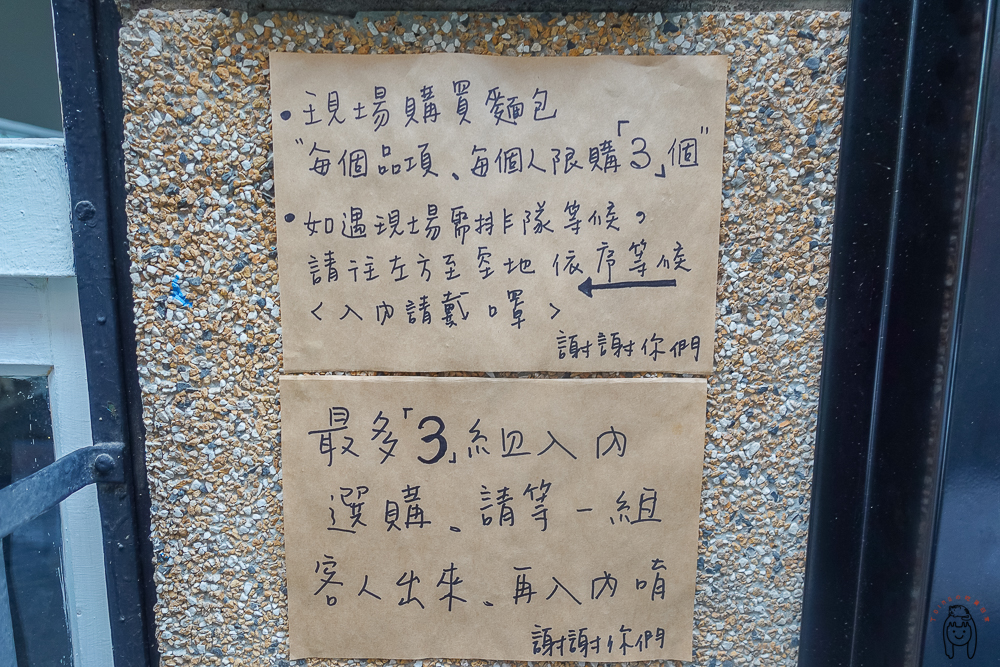 •現場購買麵包
"每個品項、每個人限購「3」個"
•如遇現場需排隊等候。
請往左方至空地依序等候
<入內請戴口罩>
謝謝你們
最多「3」組入內
選購。請等一組
客人出來、再入內唷
謝謝你們